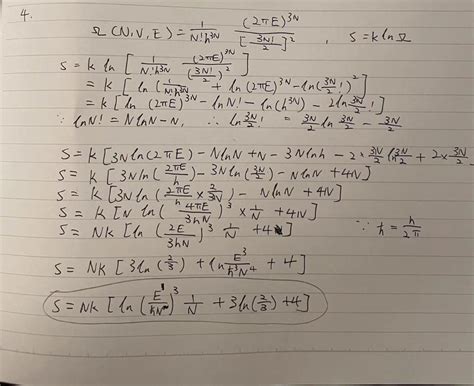 4.
Ω(N,V,E) = 1/(N!h^3N) (2πE)^3N / [3N/2!]^2 , S = k ln Ω
S = k ln [ 1/(N!h^3N) (2πE)^3N / (3N/2!)^2 ]
= k [ ln ( 1/(N!h^3N) + ln (2πE)^3N - ln(3N/2!)^2 ]
= k [ ln (2πE)^3N - ln N! - ln(h^3N) - 2 ln 3N/2! ]
∵ ln N! = N ln N - N, ∴ ln 3N/2! = 3N/2 ln 3N/2 - 3N/2
S = k [ 3N ln(2πE) - N ln N + N - 3N ln h - 2 × 3N/2 ln 3N/2 + 2 × 3N/2 ]
S = k [ 3N ln ( 2πE/h ) - 3N ln (3N/2) - N ln N + 4N ]
S = k [ 3N ln ( 2πE/h × 2/3N ) - N ln N + 4N ]
S = k [ N ln ( 4πE/3hN )^3 × 1/N + 4N ]
S = Nk [ ln ( 2E/3ħN )^3 1/N + 4 ] ∵ ħ = h/2π
S = Nk [ 3 ln (2/3) + ln E^3/ħ^3N^4 + 4 ]
S = Nk [ ln ( E/ħN )^3 1/N + 3 ln (2/3) + 4 ]